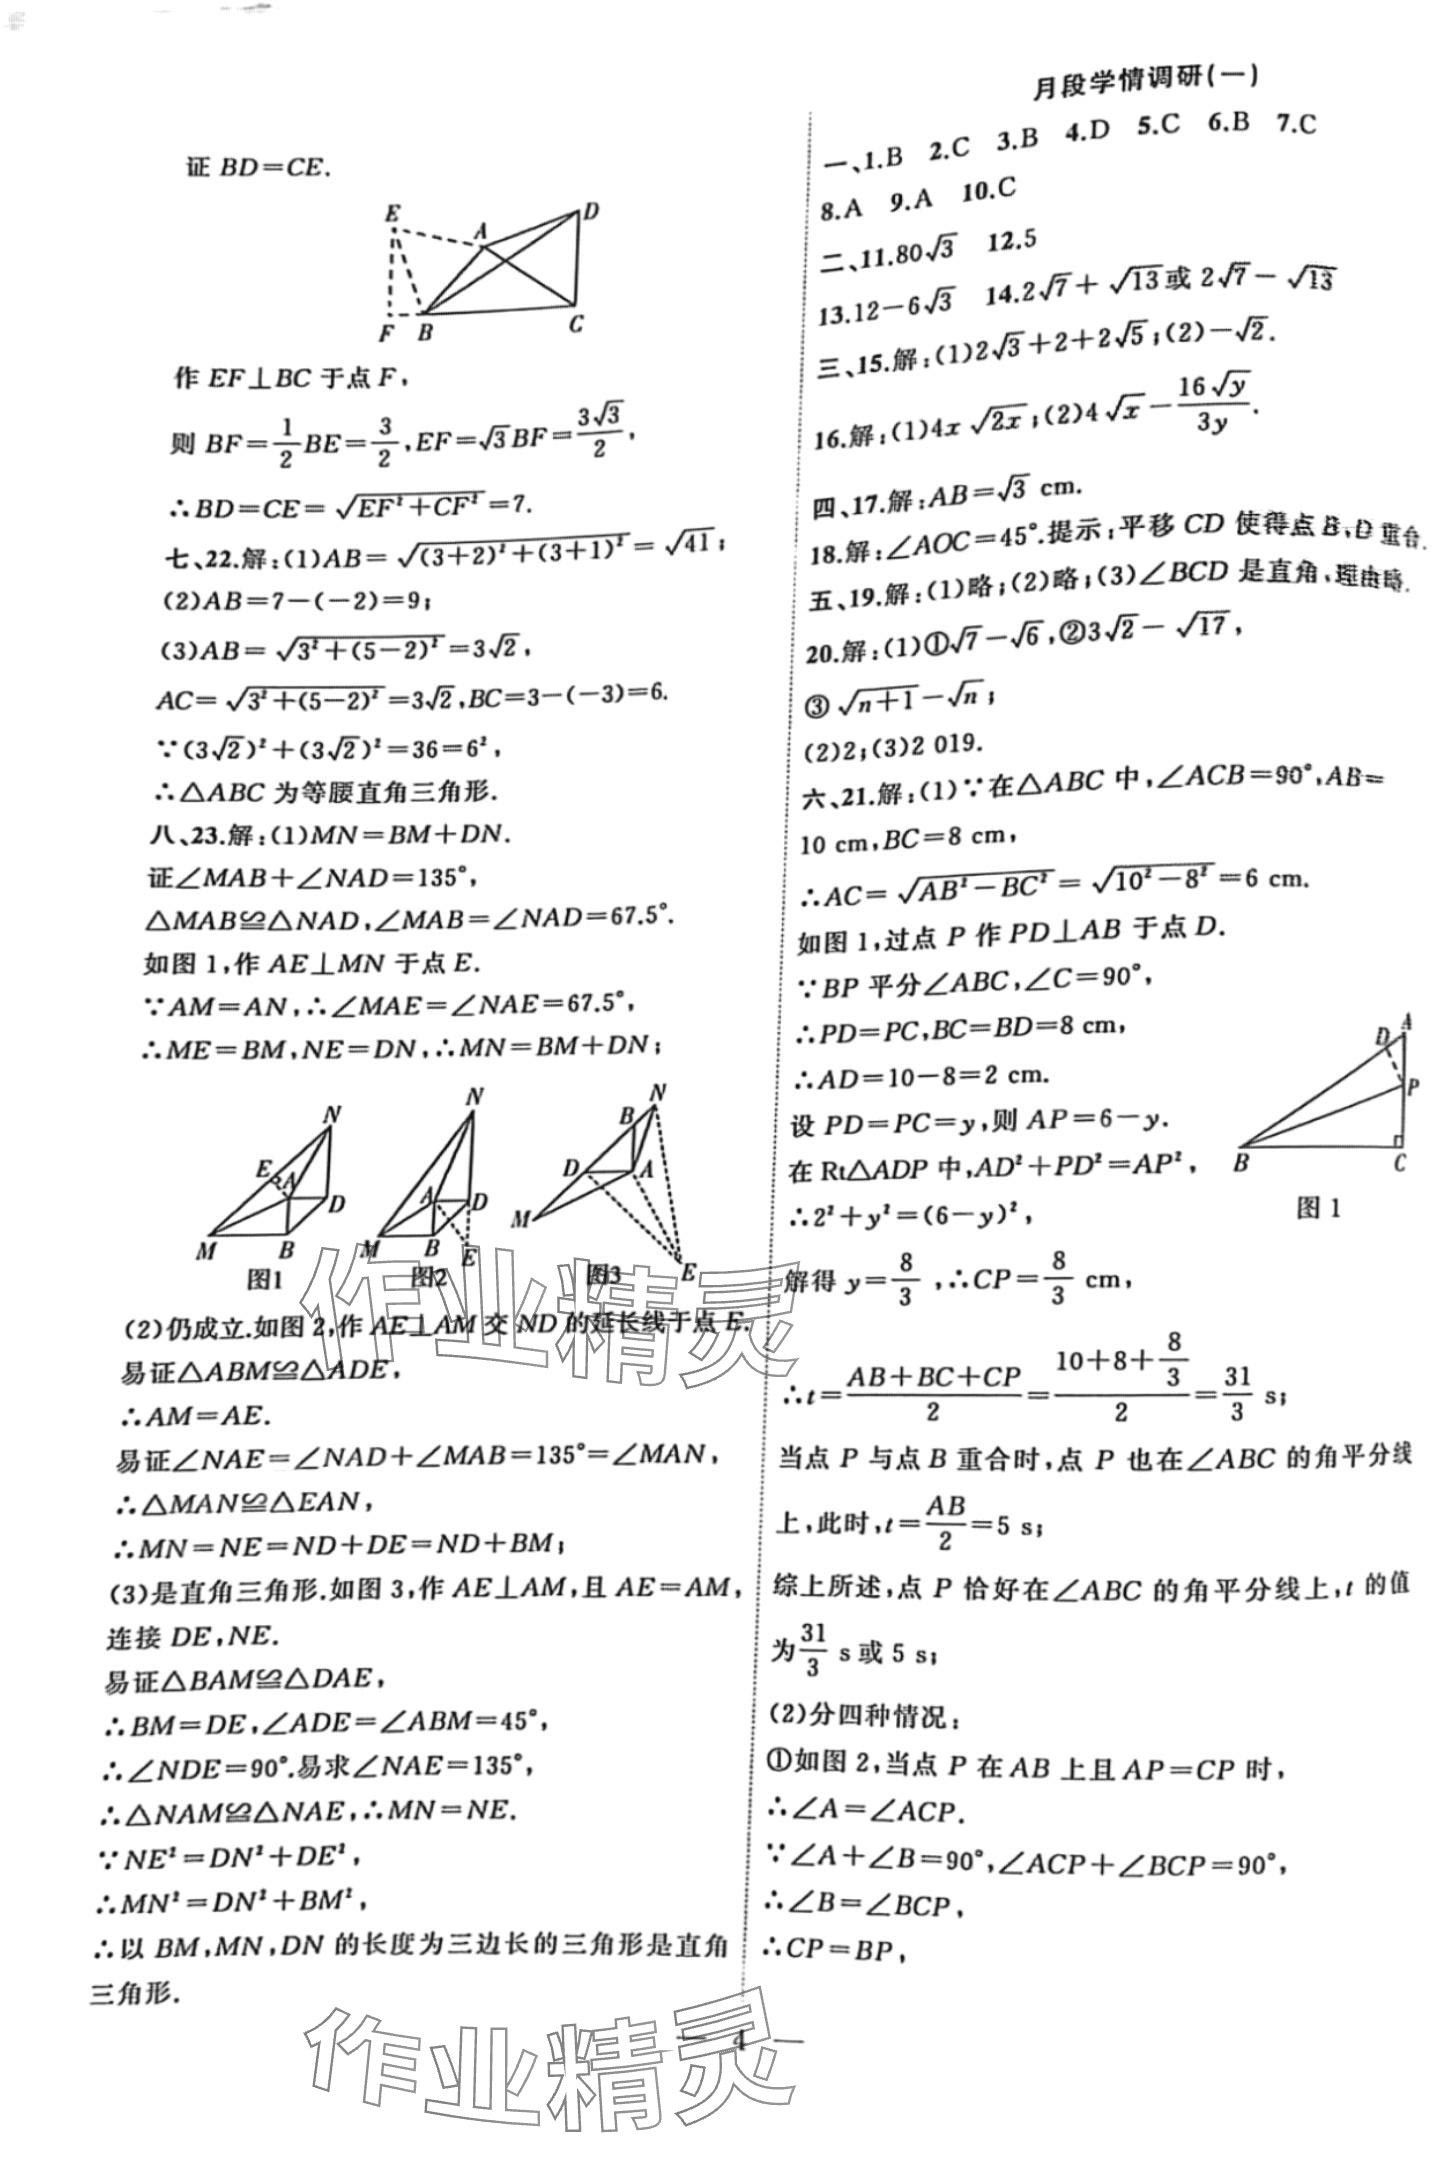 证 BD=CE.
E
A
D
F
B
C
作 EF⊥BC 于点 F,
则 BF=1/2BE=3/2,EF=√3BF=3√3/2,
∴BD=CE=√(EF²+CF²)=7.
七、22.解:(1)AB=√((3+2)²+(3+1)²)=√41;
(2)AB=7-(-2)=9;
(3)AB=√(3²+(5-2)²)=3√2,
AC=√(3²+(5-2)²)=3√2,BC=3-(-3)=6.
∵(3√2)²+(3√2)²=36=6²,
∴△ABC 为等腰直角三角形.
八、23.解:(1)MN=BM+DN.
证∠MAB+∠NAD=135°,
△MAB≌△NAD,∠MAB=∠NAD=67.5°.
如图 1,作 AE⊥MN 于点 E.
∵AM=AN,∴∠MAE=∠NAE=67.5°,
∴ME=BM,NE=DN,∴MN=BM+DN;
N
E
A
D
M
B
图1
N
A
D
M
B
E
图2
N
B
D
A
M
E
图3
(2)仍成立.如图 2,作 AE⊥AM 交 ND 的延长线于点 E.
易证△ABM≌△ADE,
∴AM=AE.
易证∠NAE=∠NAD+∠MAB=135°=∠MAN,
∴△MAN≌△EAN,
∴MN=NE=ND+DE=ND+BM;
(3)是直角三角形.如图 3,作 AE⊥AM,且 AE=AM,
连接 DE,NE.
易证△BAM≌△DAE,
∴BM=DE,∠ADE=∠ABM=45°,
∴∠NDE=90°.易求∠NAE=135°,
∴△NAM≌△NAE,∴MN=NE.
∵NE²=DN²+DE²,
∴MN²=DN²+BM²,
∴以 BM,MN,DN 的长度为三边长的三角形是直角
三角形.
月段学情调研(一)
一、1.B 2.C 3.B 4.D 5.C 6.B 7.C
8.A 9.A 10.C
二、11.80√3 12.5
13.12-6√3 14.2√7+√13或 2√7-√13
三、15.解:(1)2√3+2+2√5;(2)-√2.
16.解:(1)4x√(2x);(2)4√x-16√y/3y.
四、17.解:AB=√3 cm.
18.解:∠AOC=45°.提示:平移 CD 使得点 B,D 重合.
五、19.解:(1)略;(2)略;(3)∠BCD 是直角,理由略.
20.解:(1)①√7-√6,②3√2-√17,
③√(n+1)-√n;
(2)2;(3)2 019.
六、21.解:(1)∵在△ABC 中,∠ACB=90°,AB=
10 cm,BC=8 cm,
∴AC=√(AB²-BC²)=√(10²-8²)=6 cm.
如图 1,过点 P 作 PD⊥AB 于点 D.
∵BP 平分∠ABC,∠C=90°,
∴PD=PC,BC=BD=8 cm,
∴AD=10-8=2 cm.
设 PD=PC=y,则 AP=6-y.
在 Rt△ADP 中,AD²+PD²=AP²,
∴2²+y²=(6-y)²,
A
D
P
B
C
图 1
解得 y=8/3,∴CP=8/3 cm,
∴t=(AB+BC+CP)/2=(10+8+8/3)/2=31/3 s;
当点 P 与点 B 重合时,点 P 也在∠ABC 的角平分线
上,此时,t=AB/2=5 s;
综上所述,点 P 恰好在∠ABC 的角平分线上,t 的值
为31/3 s 或 5 s;
(2)分四种情况:
①如图 2,当点 P 在 AB 上且 AP=CP 时,
∴∠A=∠ACP.
∵∠A+∠B=90°,∠ACP+∠BCP=90°,
∴∠B=∠BCP,
∴CP=BP,
作业精灵
作业精灵
— 4 —